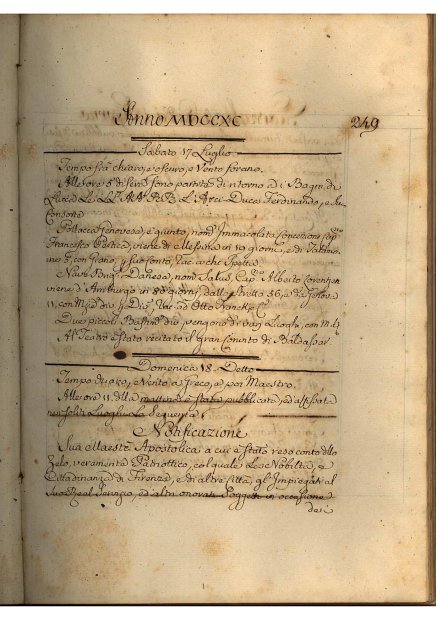 Anno MDCCXC
249
Sabato 17 Luglio
Tempo fra chiaro, e oscuro, e Vento forano.
Alle ore 5 di sera sono partiti di ritorno a i Bagni di
Lucca Le LL. AA. RR. L'Arci Duca Ferdinando, e Sua
Consorte
Polacca Genovese è quinta, nom. Immacolata Concezione Cap.no
Francesco viene di Messina in 19 giorni, e di
con Grano,
Nave Danese, nom. Salus, Cap. Alberto Lorenzen
viene d'Amburgo in giorni, dallo Stretto 36, e da Genova
11, con ad Otto Franck e C.
Due piccoli Bastim. div. vengono di varj Luoghi, con
Al Teatro è stato recitato il gran Convito di Baldassar.
Domenica 18. Detto
Tempo e Vento a Greco, e poi Maestro.
Alle ore 11. della mattina è stata pubblicata, ed affissa
nei soliti Luoghi La Seguente
Notificazione
Sua Maestà Apostolica a cui è stato reso conto dello
Zelo, veramente Patriottico, col quale Le Nobiltà, e
Cittadinanza di Firenze, e di altre Città, gl'Impiegati al
Suo Real Servizio, ed altri onorati Soggetti in occasione
dei